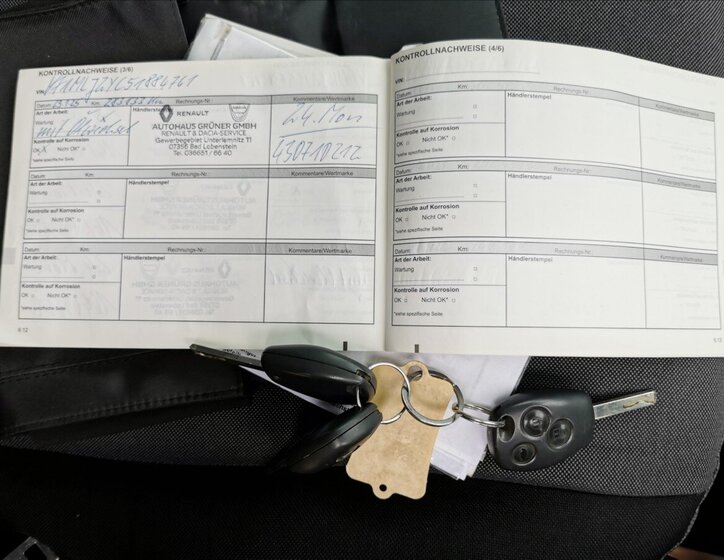 KONTROLLNACHWEISE (3/6)
VIN:
Datum: Km: Rechnungs-Nr.: Kommentare/Wertmarke
Art der Arbeit:
Wartung
mit Ölwechsel
Kontrolle auf Korrosion
OK X Nicht OK*
*siehe spezifische Seite
Händlerstempel
RENAULT
DACIA
AUTOHAUS GRÜNER GMBH
RENAULT & DACIA-SERVICE
Gewerbegebiet Unterlemnitz 11
07356 Bad Lobenstein
Tel. 036651 / 66 40
24. Mon
430710212
Datum: Km: Rechnungs-Nr.: Kommentare/Wertmarke
Art der Arbeit:
Wartung
Kontrolle auf Korrosion
OK Nicht OK*
*siehe spezifische Seite
Händlerstempel
Datum: Km: Rechnungs-Nr.: Kommentare/Wertmarke
Art der Arbeit:
Wartung
Kontrolle auf Korrosion
OK Nicht OK*
*siehe spezifische Seite
Händlerstempel
6.12
KONTROLLNACHWEISE (4/6)
VIN:
Datum: Km: Rechnungs-Nr.: Kommentare/Wertmarke
Art der Arbeit:
Wartung
Kontrolle auf Korrosion
OK Nicht OK*
*siehe spezifische Seite
Händlerstempel
Datum: Km: Rechnungs-Nr.: Kommentare/Wertmarke
Art der Arbeit:
Wartung
Kontrolle auf Korrosion
OK Nicht OK*
*siehe spezifische Seite
Händlerstempel
Datum: Km: Rechnungs-Nr.: Kommentare/Wertmarke
Art der Arbeit:
Wartung
Kontrolle auf Korrosion
OK Nicht OK*
*siehe spezifische Seite
Händlerstempel
6.13